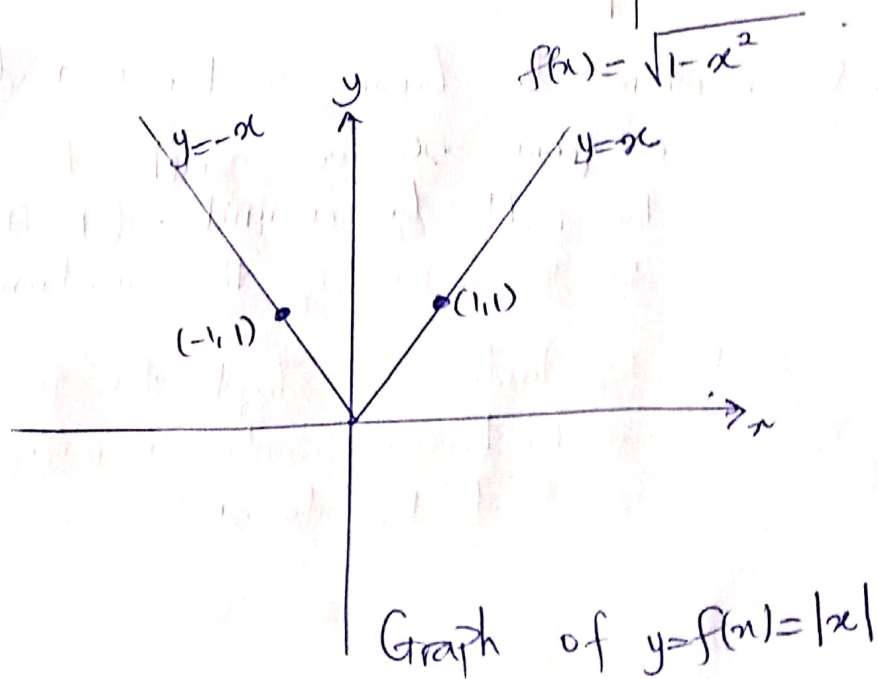 f(x) = √1-x²
y
y=-x
y=x
(1,1)
(-1,1)
x
Graph of y=f(x)=|x|